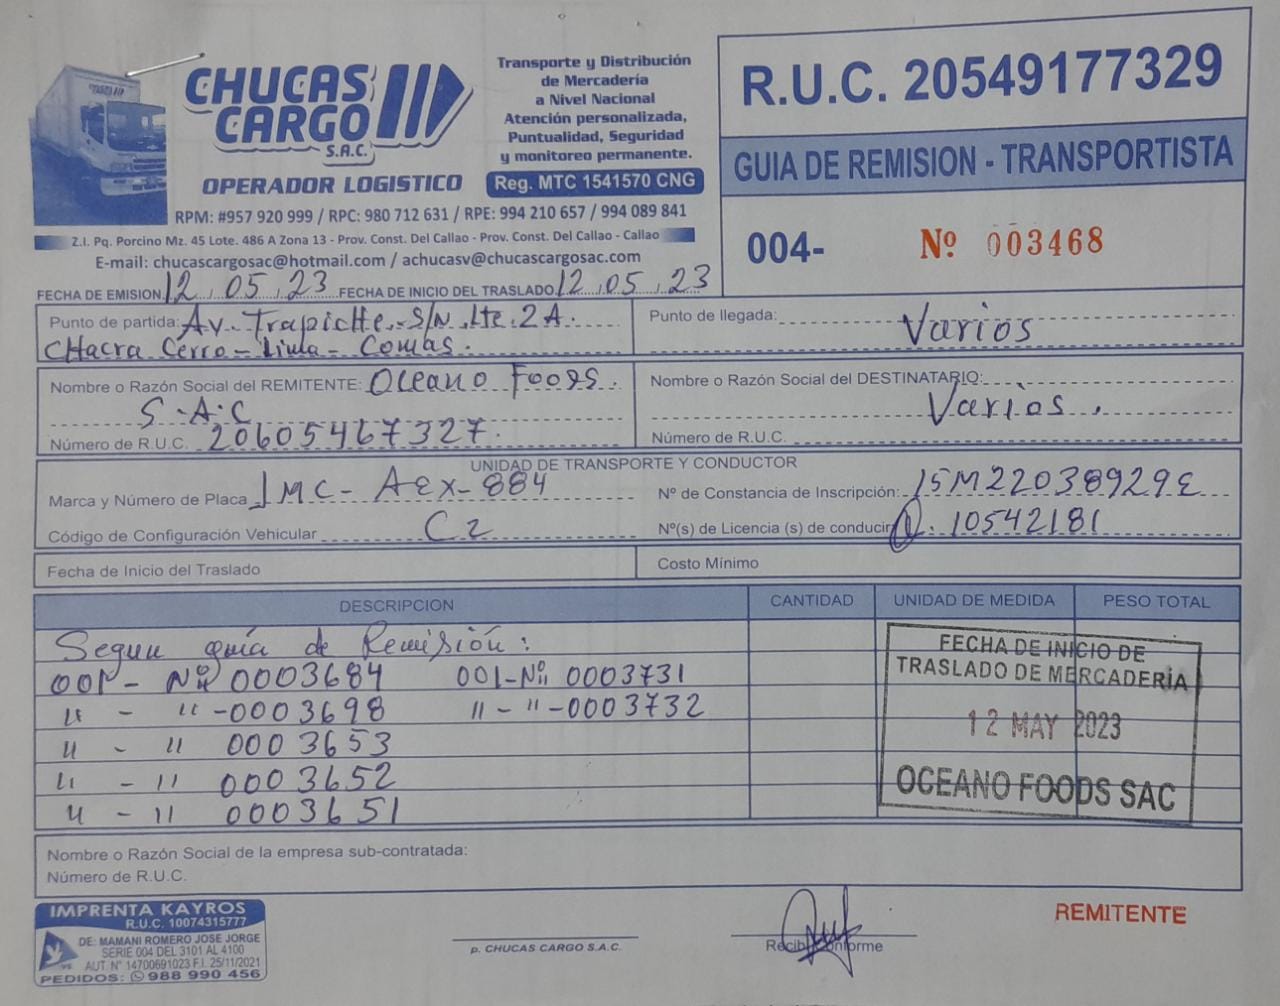 CHUCAS
CARGO
S.A.C.
OPERADOR LOGISTICO
Transporte y Distribución
de Mercadería
a Nivel Nacional
Atención personalizada,
Puntualidad, Seguridad
y monitoreo permanente.
Reg. MTC 1541570 CNG
RPM: #957 920 999 / RPC: 980 712 631 / RPE: 994 210 657 / 994 089 841
Z.I. Pq. Porcino Mz. 45 Lote. 486 A Zona 13 - Prov. Const. Del Callao - Prov. Const. Del Callao - Callao
E-mail: chucascargosac@hotmail.com / achucasv@chucascargosac.com
R.U.C. 20549177329
GUIA DE REMISION - TRANSPORTISTA
004- Nº 003468
FECHA DE EMISION 12 . 05 . 23 FECHA DE INICIO DEL TRASLADO 12 . 05 . 23
Punto de partida: Av. Trapiche S/N Lte. 2A.
Chacra Cerro - Lima - Comas.
Punto de llegada: Varios
Nombre o Razón Social del REMITENTE: Oceano Foods.
S.A.C
Número de R.U.C. 20605467327.
Nombre o Razón Social del DESTINATARIO:
Varios.
Número de R.U.C.
UNIDAD DE TRANSPORTE Y CONDUCTOR
Marca y Número de Placa JMC - AEX-884
Nº de Constancia de Inscripción: 15M22038929E
Código de Configuración Vehicular C2
Nº(s) de Licencia (s) de conducir Q. 10542181
Fecha de Inicio del Traslado
Costo Mínimo
DESCRIPCION CANTIDAD UNIDAD DE MEDIDA PESO TOTAL
Segun guía de Remisión:
001- Nº 0003684 001-Nº 0003731
" - " -0003698 " - " -0003732
" - " 0003653
" - " 0003652
" - " 0003651
FECHA DE INICIO DE
TRASLADO DE MERCADERÍA
12 MAY 2023
OCEANO FOODS SAC
Nombre o Razón Social de la empresa sub-contratada:
Número de R.U.C.
IMPRENTA KAYROS
R.U.C. 10074315777
DE: MAMANI ROMERO JOSE JORGE
SERIE 004 DEL 3101 AL 4100
AUT. N° 14700691023 F.I. 25/11/2021
PEDIDOS: 988 990 456
p. CHUCAS CARGO S.A.C.
Recibi Conforme
REMITENTE